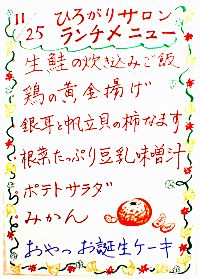 11/25 ひろがりサロン
ランチメニュー
生鮭の炊き込みご飯
鶏の黄金揚げ
銀耳と帆立貝の柿なます
根菜たっぷり豆乳味噌汁
ポテトサラダ
みかん
おやつ お誕生ケーキ